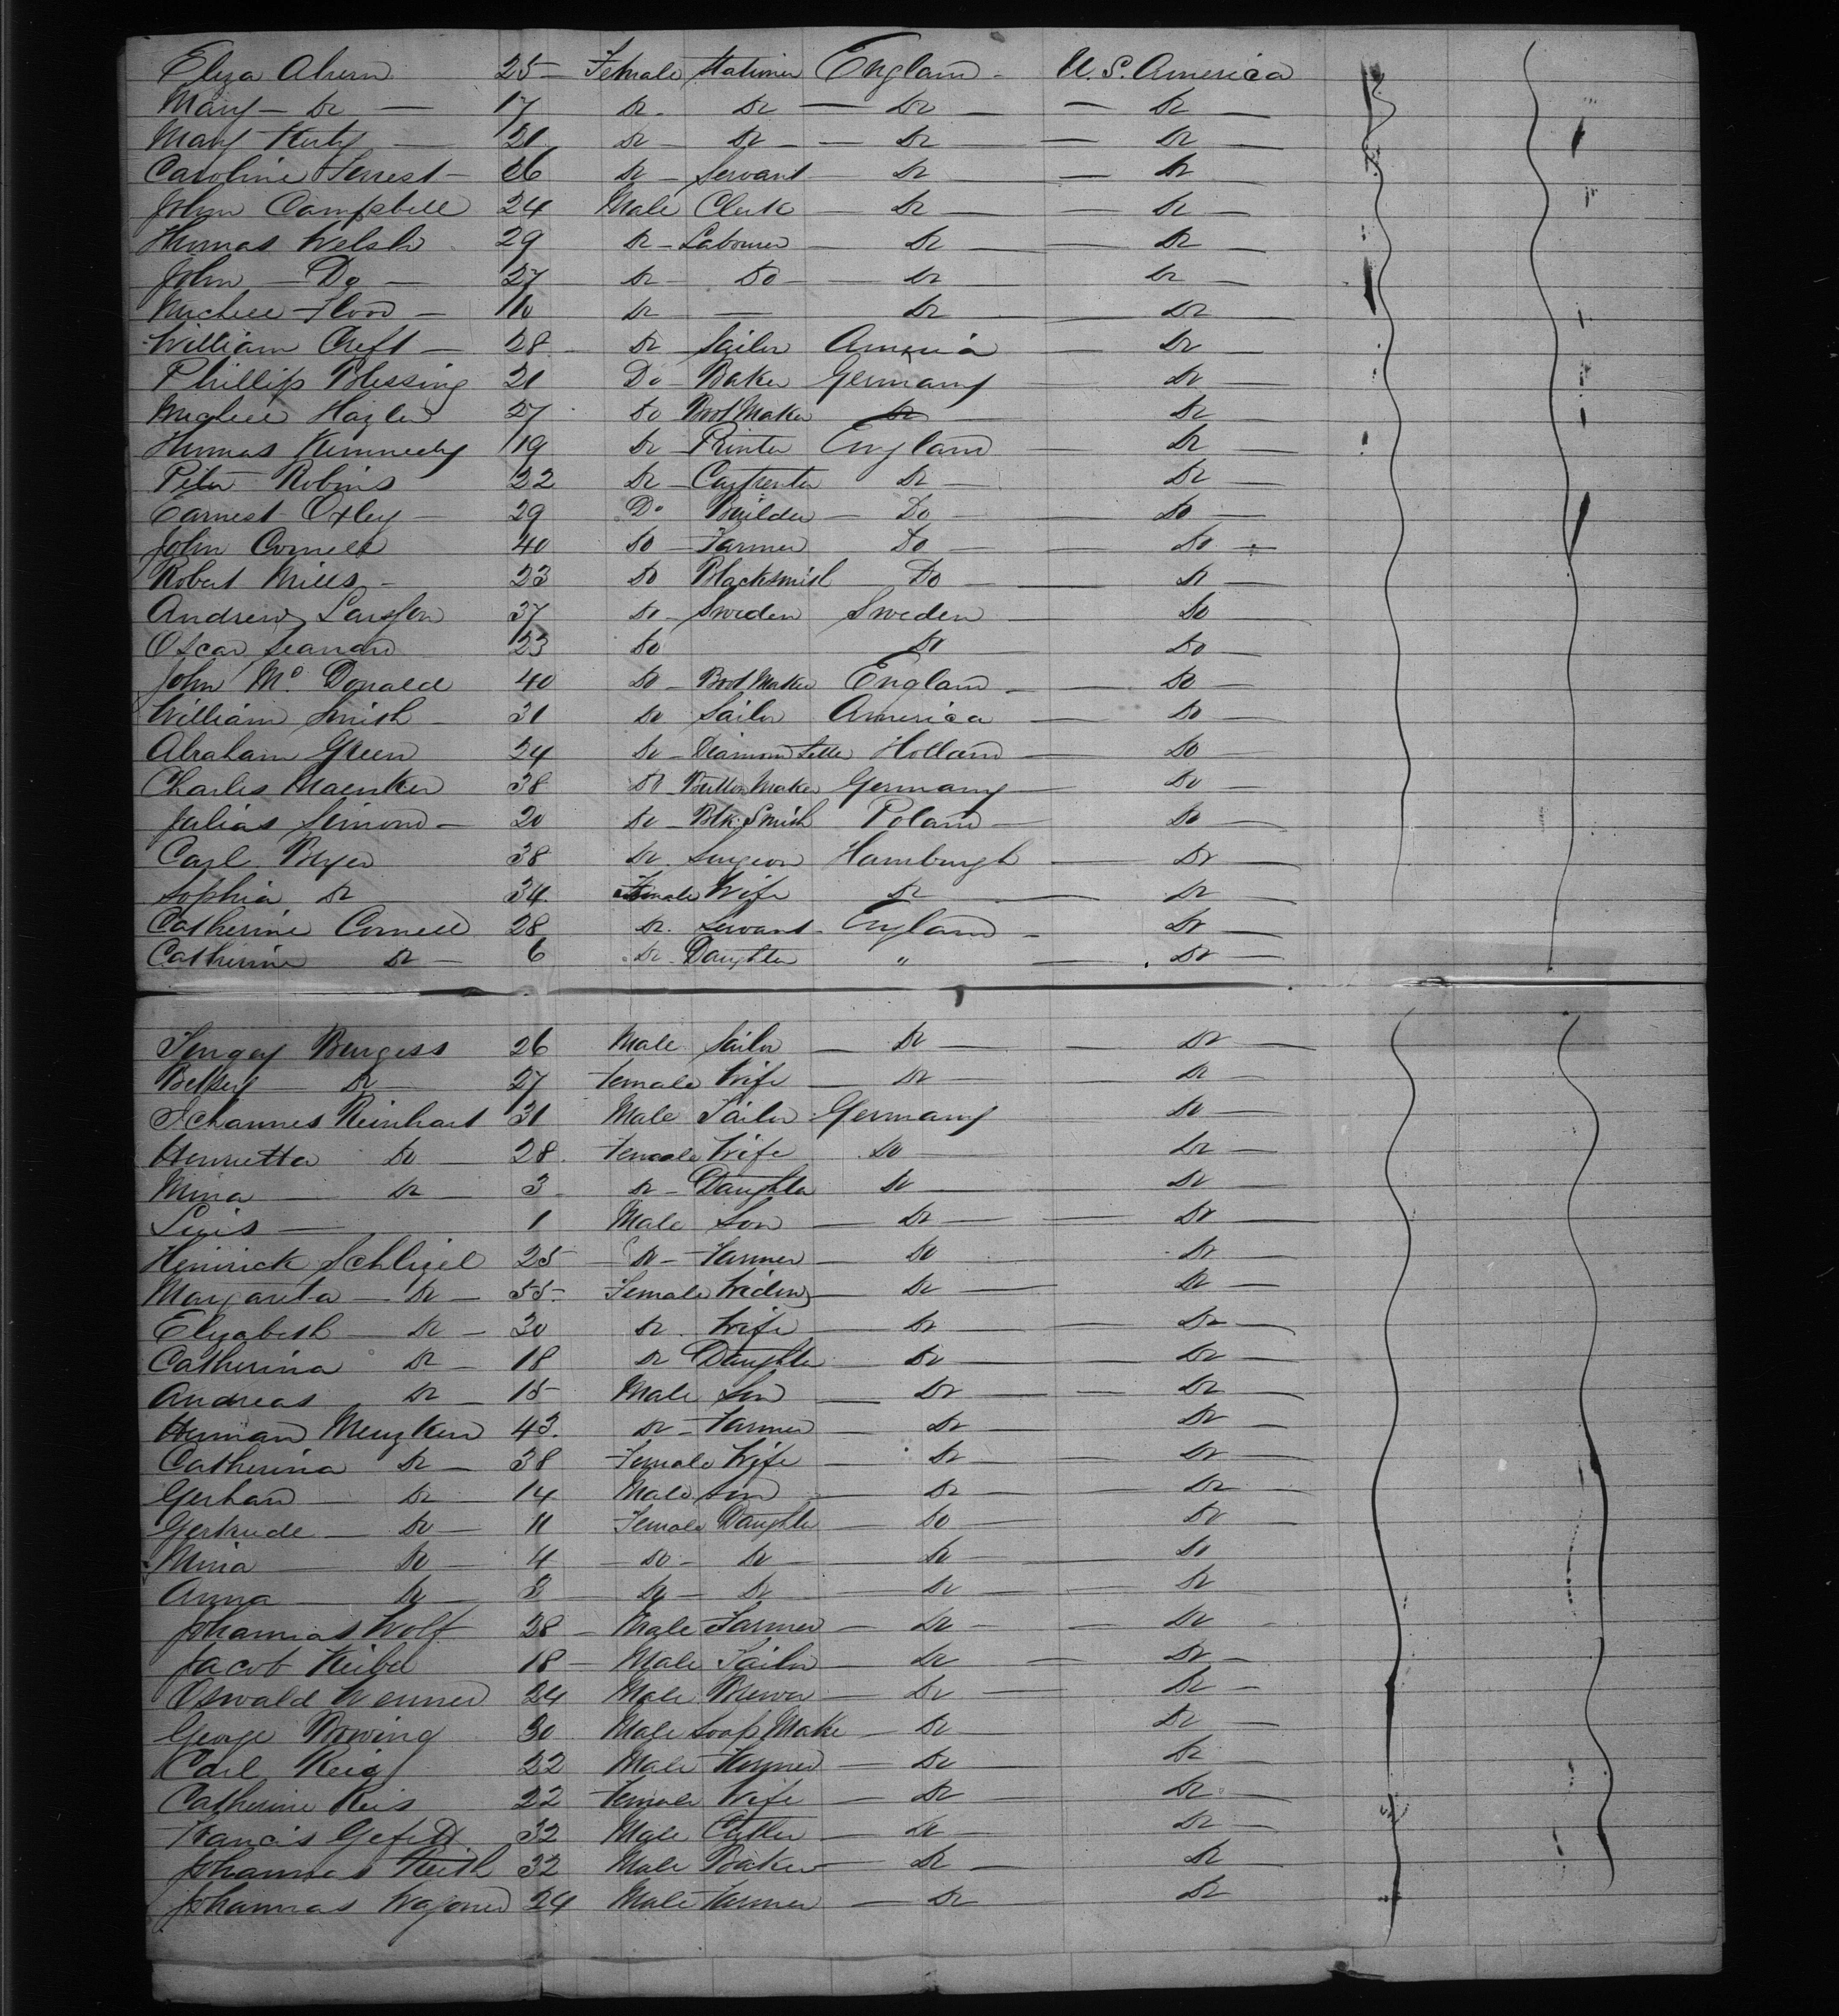 Eliza Ahern 25 Female Stationer England U.S. America
Mary Do 17 Do Do Do Do
Mary 21 Do Do Do Do
Caroline Forrest 26 Do Servant Do Do
John Campbell 24 Male Clerk Do Do
Thomas Welsh 29 Do Labourer Do Do
John Do 27 Do Do Do Do
Michell Flood 10 Do Do Do
William Creft 28 Do Sailor America Do
Phillip Blessing 21 Do Baker Germany Do
Michell Hazler 27 Do Boot Maker Do Do
Thomas Kennedy 19 Do Printer England Do
Peter Robins 22 Do Carpenter Do Do
Earnest Oxley 29 Do Builder Do Do
John Cornell 40 Do Farmer Do Do
Robert Mills 23 Do Blacksmith Do Do
Andrew Larsson 37 Do Sweden Sweden Do
Oscar 23 Do Do Do
John Mc Donald 40 Do Boot Maker England Do
William Smish 31 Do Sailor America Do
Abraham Green 24 Do Diamond Holland Do
Charles Maenker 38 Do Button Maker Germany Do
Julias Simond 20 Do Blk. Smith Poland Do
Carl Byer 38 Do Surgeon Hamburgh Do
Sophia Do 34 Female Wife Do Do
Catherine Cornell 28 Do Servant England Do
Catherine Do 6 Do Daughter " Do
Burgess 26 Male Sailor Do Do
Betsey Do 27 Female Wife Do Do
Johannes Reinhart 31 Male Tailor Germany Do
Henrietta Do 28 Female Wife Do Do
Mina Do 3 Do Daughter Do Do
Luis 1 Male Son Do Do
Heinrick Schligel 25 Do Farmer Do Do
Margareta Do 55 Female Widow Do Do
Elizabeth Do 30 Do Wife Do Do
Catherina Do 18 Do Daughter Do Do
Andreas Do 15 Male Son Do Do
Herman Menzken 43 Do Farmer Do Do
Catherina Do 38 Female Wife Do Do
Gerhard Do 14 Male Son Do Do
Gertrude Do 11 Female Daughter Do Do
Mina Do 4 Do Do Do Do
Anna Do 3 Do Do Do Do
Johannas Wolf 28 Male Farmer Do Do
Jacob Keibel 18 Male Tailor Do Do
Oswald Wenner 24 Male Brewer Do Do
George Bowing 30 Male Soap Make Do Do
Carl Reis 22 Male Farmer Do Do
Catherine Reis 22 Female Wife Do Do
Francis 32 Male Cutler Do Do
Johannes Keith 32 Male Baker Do Do
Johannas Wagoner 24 Male Farmer Do Do